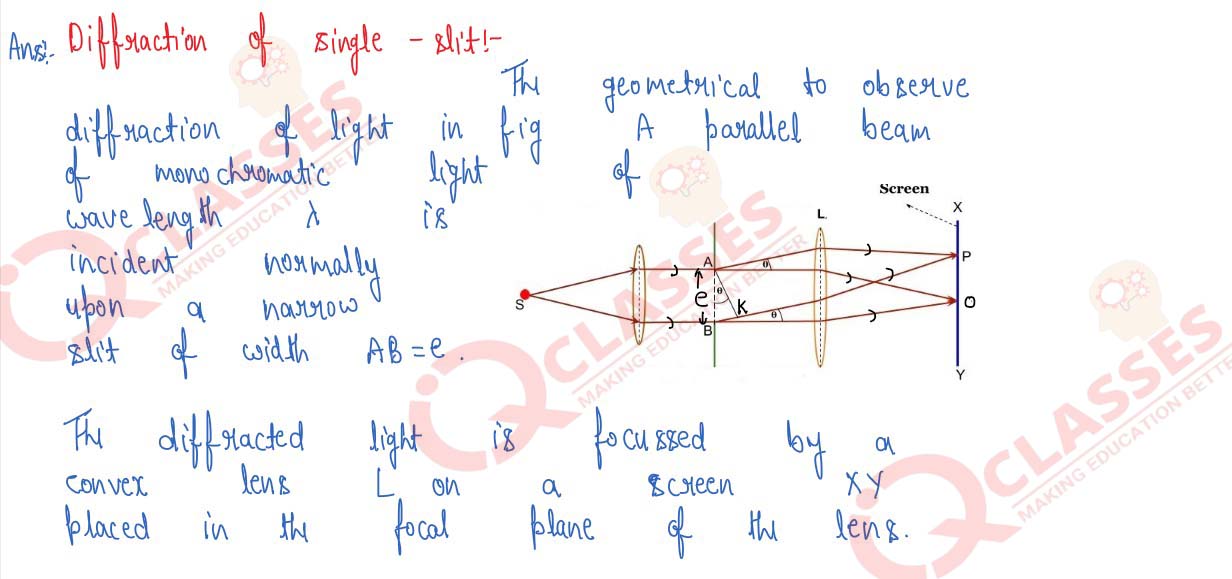 Ans:- Diffraction of single - slit!-
The geometrical to observe
diffraction of light in fig A parallel beam
of monochromatic light of
wave length λ is
incident normally
upon a narrow
slit of width AB = e.
Screen
X
L
A
P
θ
S
e
θ
K
O
B
θ
Y
The diffracted light is focussed by a
convex lens L on a screen XY
placed in the focal plane of the lens.
IQ CLASSES
MAKING EDUCATION BETTER
IQ CLASSES
MAKING EDUCATION BETTER
IQ CLASSES
MAKING EDUCATION BETTER